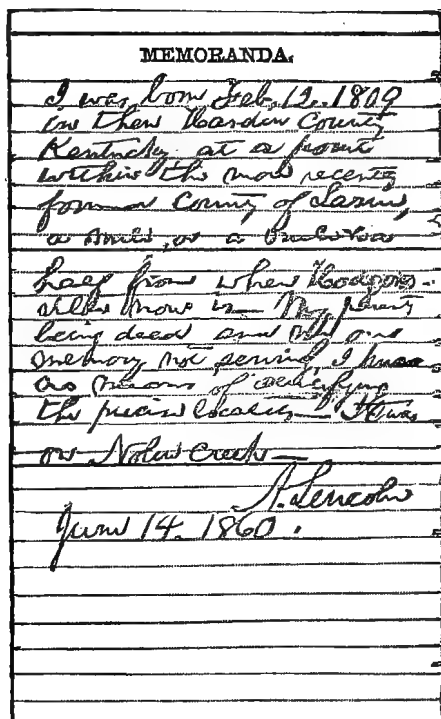 MEMORANDA.
I was born Feb. 12. 1809
in then Hardin County
Kentucky, at a point
within the now recently
formed County of Larue,
a mile, or a mile & a
half from where Hodgens-
ville now is— My parents
being dead and my own
memory not serving, I know
no means of identifying
the precise locality— It was
on Nolin Creek—
A. Lincoln
June 14. 1860.